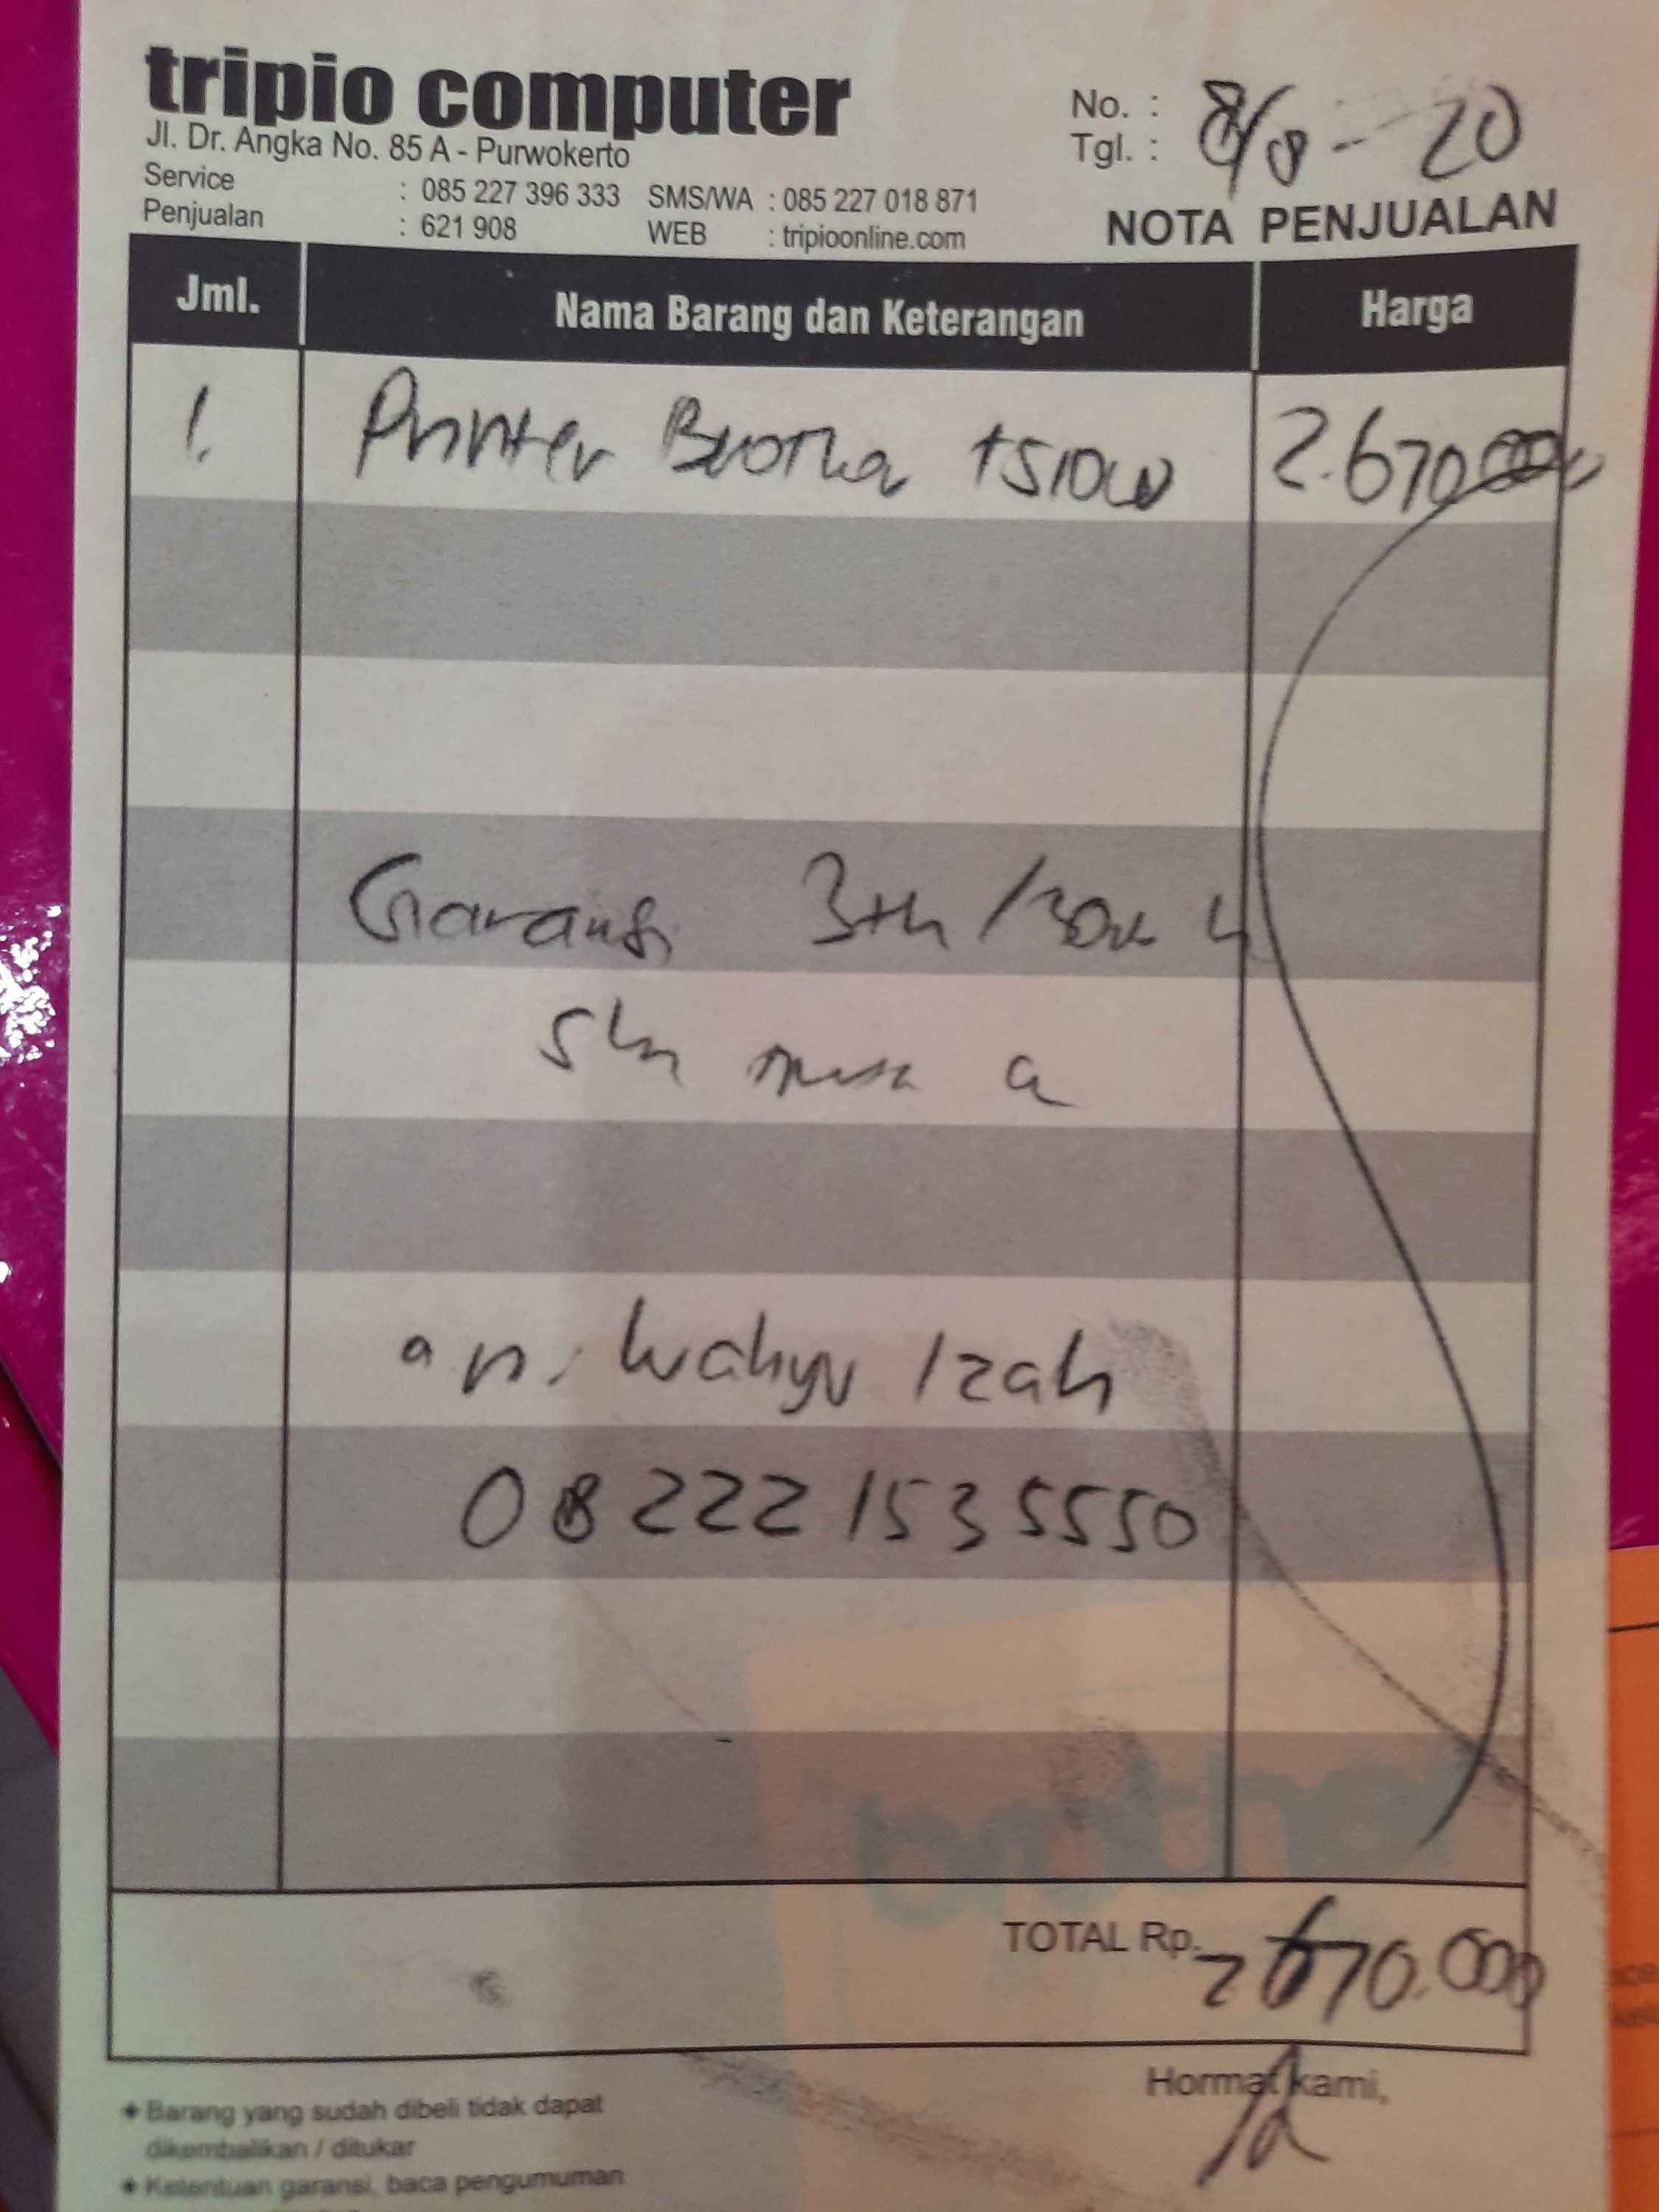 tripio computer
Jl. Dr. Angka No. 85 A - Purwokerto
Service : 085 227 396 333 SMS/WA : 085 227 018 871
Penjualan : 621 908 WEB : tripioonline.com
No. :
Tgl. : 8/8 - 20
NOTA PENJUALAN
Jml. Nama Barang dan Keterangan Harga
1. Printer Brother T510W 2.670.000
Garansi 3th / 30k
a n. Wahyu Izah
082221535550
TOTAL Rp. 2670.000
Hormat kami,
Barang yang sudah dibeli tidak dapat
dikembalikan / ditukar
Ketentuan garansi, baca pengumuman